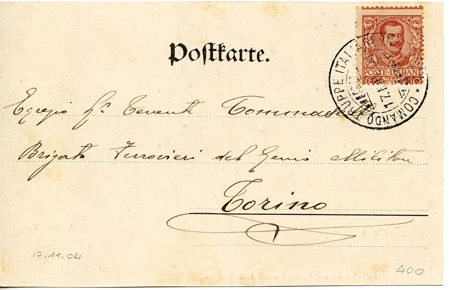 Postkarte.
POSTE ITALIANE
COMANDO TRUPPE ITALIA
Egregio Sr. Tenente Tommasi
Brigata Ferrovieri del Genio Militare
Torino
17.11.04
400